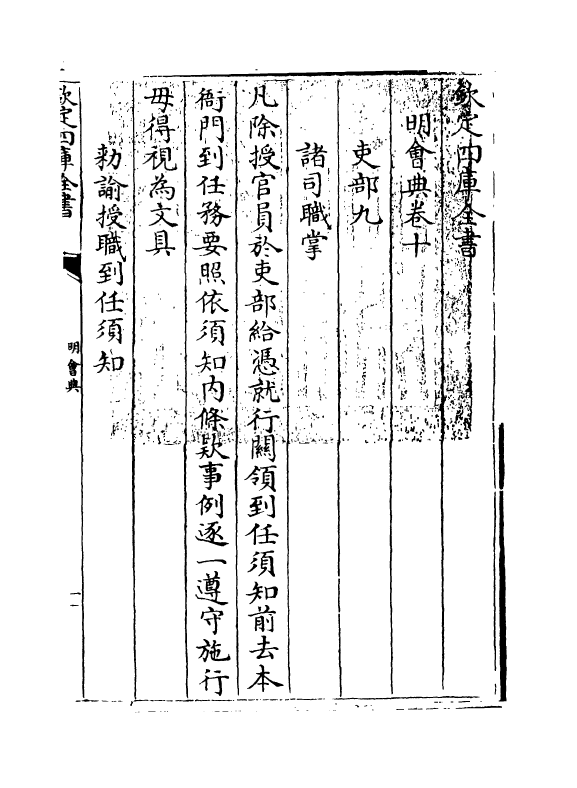 欽定四庫全書
明會典卷十
吏部九
諸司職掌
凡除授官員於吏部給憑就行關領到任須知前去本
衙門到任務要照依須知內條欵事例逐一遵守施行
毋得視為文具
勑諭授職到任須知
欽定四庫全書
明會典
一